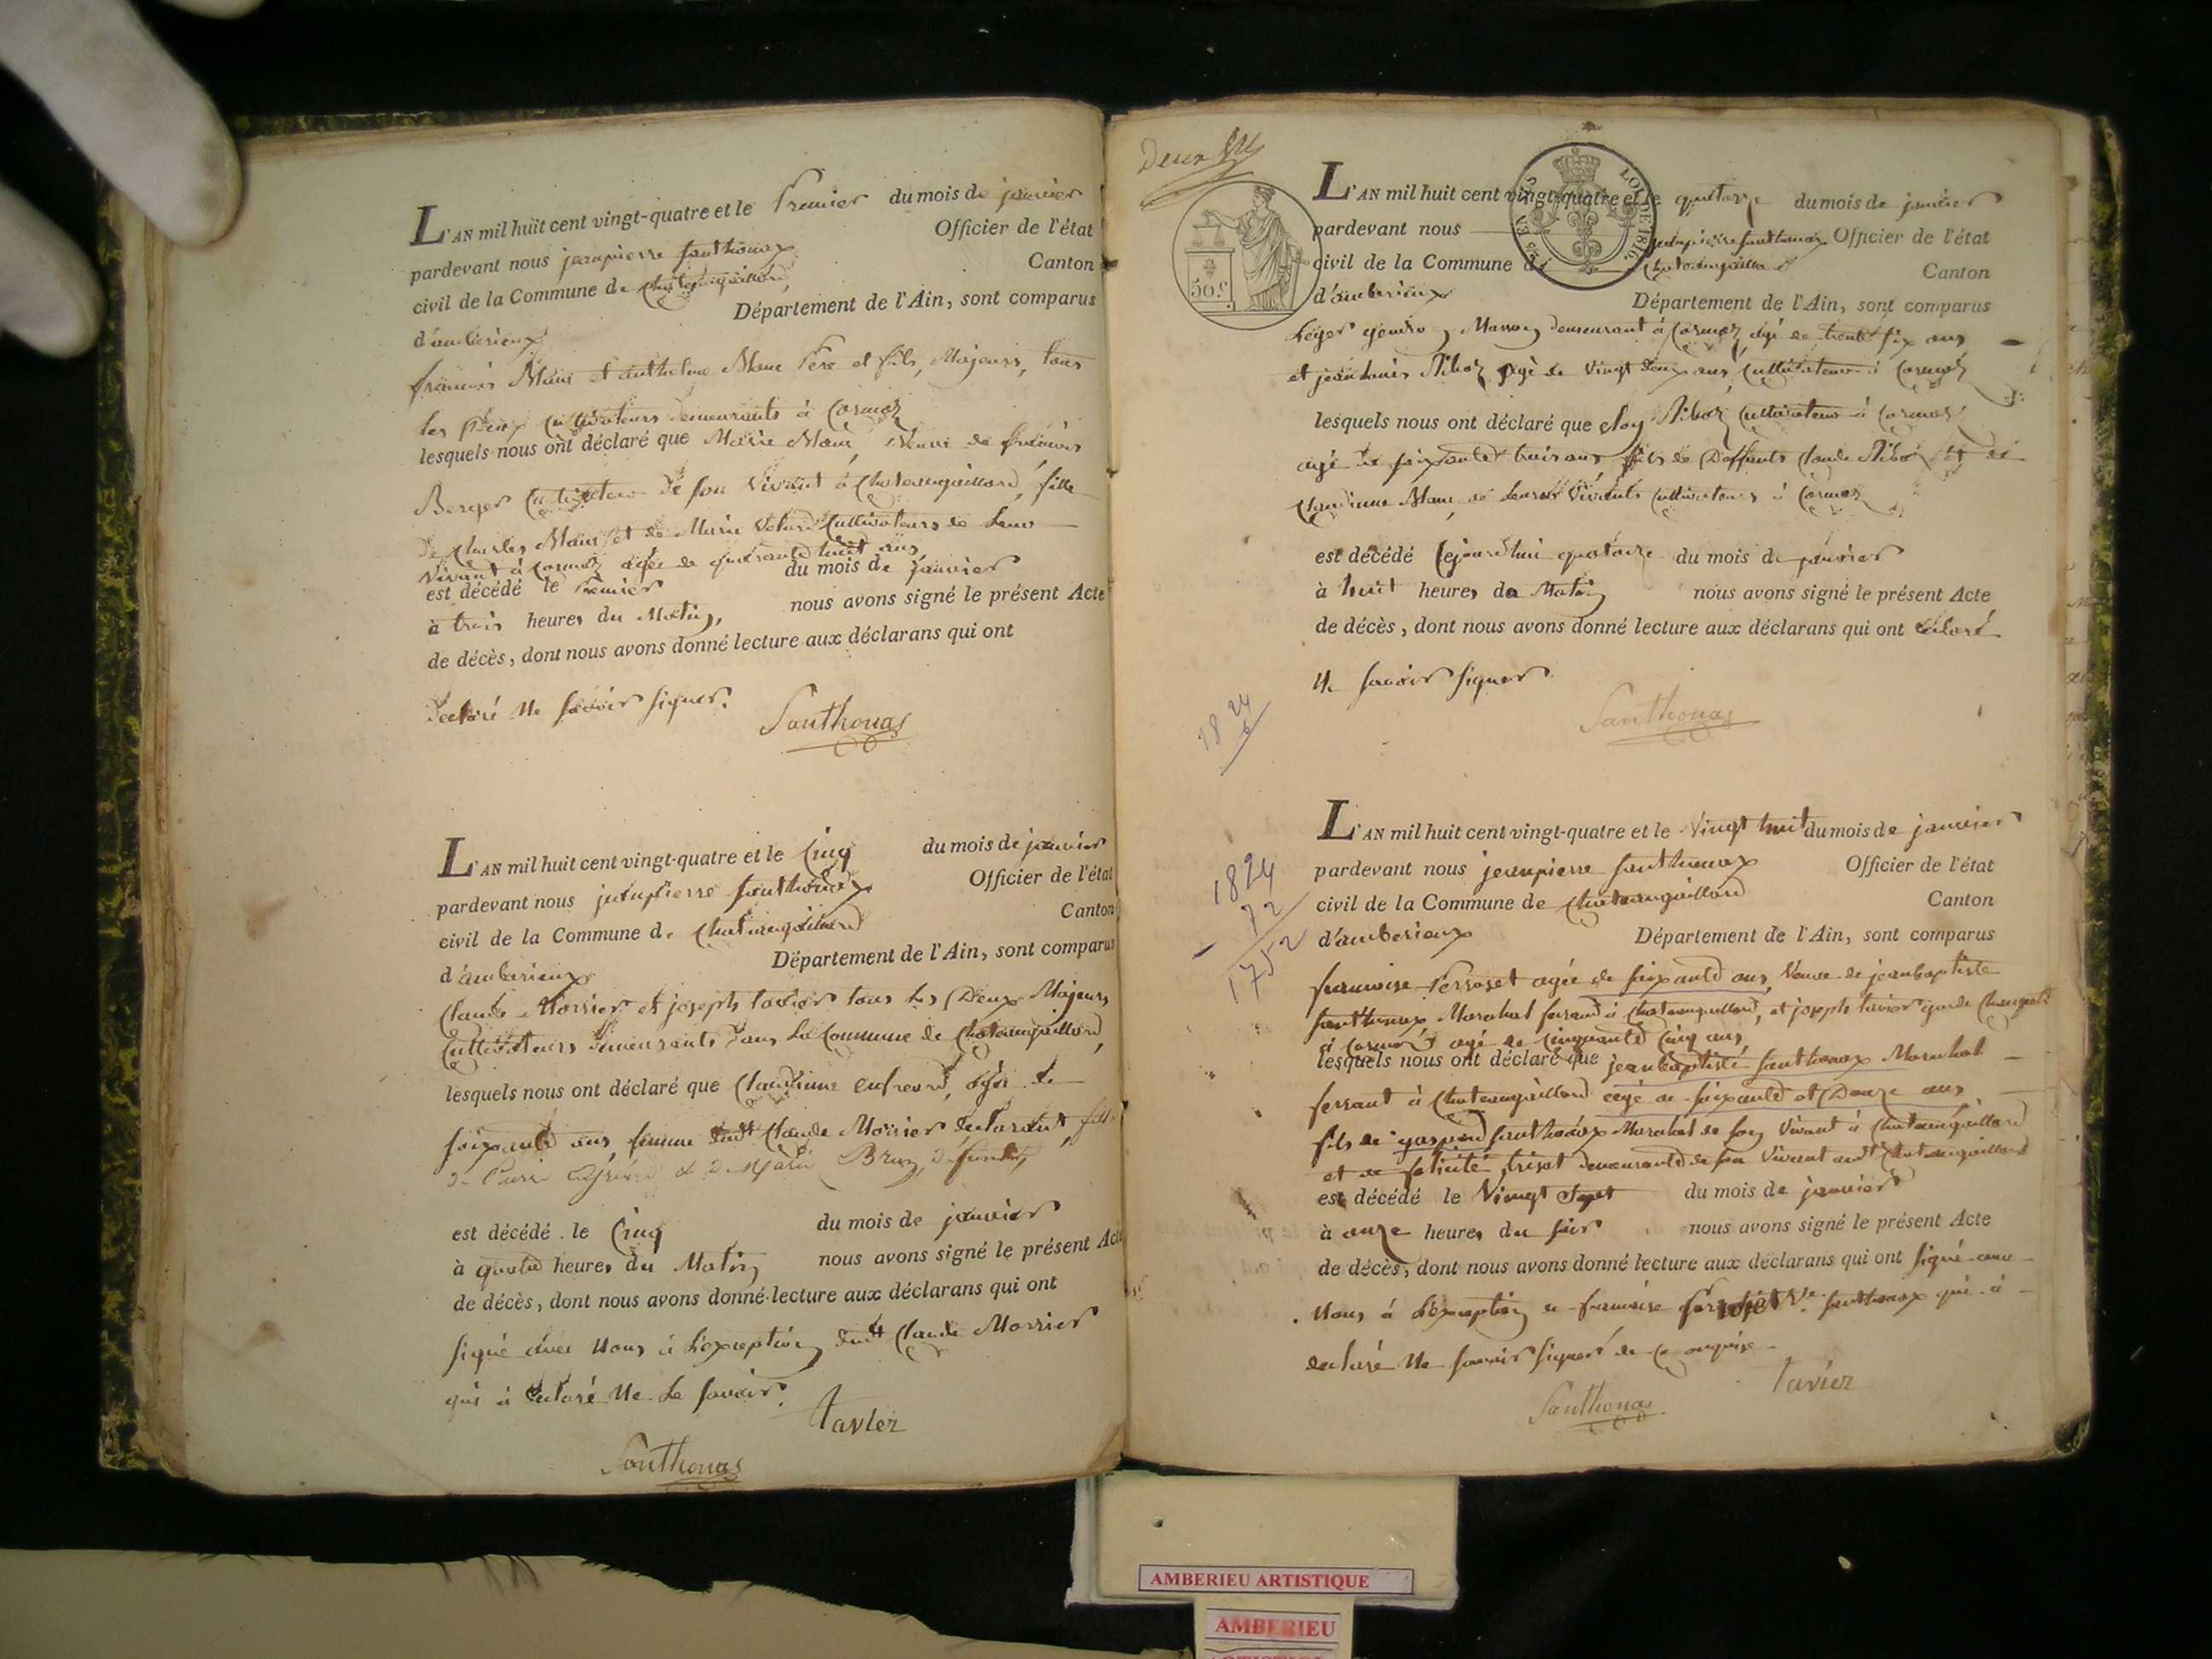 L'AN mil huit cent vingt-quatre et le Premier du mois de janvier
pardevant nous jeanpierre Santhonax Officier de l'état
civil de la Commune de Chateaugaillard, Canton
d'amberieux Département de l'Ain, sont comparus
francois Mano et anthelme Mano Pere et fils, Majeurs, tous
les Deux Cultivateurs demeurants à Cormoz
lesquels nous ont déclaré que Marie Mano, Veuve de francois
Berger Cultivateur De son Vivant à Chateaugaillard, fille
De Charles Mano et de Marie Cultivateurs de leur
Vivant à Cormoz agée de quarante huit ans,
est décédé le Premier du mois de janvier
à trois heures du Matin, nous avons signé le présent Acte
de décès, dont nous avons donné lecture aux déclarans qui ont
Déclaré Ne Savoir Signer.
Santhonax
L'AN mil huit cent vingt-quatre et le Cinq du mois de janvier
pardevant nous jeanpierre Santhonax Officier de l'état
civil de la Commune de Chateaugaillard Canton
d'amberieux Département de l'Ain, sont comparus
Claude Morrier et joseph tavier tous les Deux Majeurs
Cultivateurs Demeurants Dans La Commune de Chateaugaillard,
lesquels nous ont déclaré que Claudinne agée de
soixante ans, femme dudt Claude Morrier déclarant, fille
de Pierre & de Marie Brun, defunts,
est décédé le Cinq du mois de janvier
à quatre heures du Matin nous avons signé le présent Acte
de décès, dont nous avons donné lecture aux déclarans qui ont
Signé avec Nous à L'exception dudt Claude Morrier
qui à Déclaré Ne Le Savoir.
Tavier
Santhonax
Deux
L'AN mil huit cent vingt-quatre et le quatorze du mois de janvier
pardevant nous jeanpierre Santhonax Officier de l'état
civil de la Commune de Chateaugaillard Canton
d'amberieux Département de l'Ain, sont comparus
LOI DE 1816
50.c
Leger Masson demeurant à Cormoz agé de trente six ans
et jeanlouis Riboz agé de Vingt Deux ans Cultivateur à Cormoz
lesquels nous ont déclaré que Eloy Riboz Cultivateur à Cormoz
agé de soixante trois ans, fils de Deffunts Claude Riboz et de
Claudinne Mano de Leurs Vivants Cultivateurs à Cormoz
est décédé Cejourdhui quatorze du mois de janvier
à huit heures du Matin nous avons signé le présent Acte
de décès, dont nous avons donné lecture aux déclarans qui ont déclaré
Ne Savoir Signer
Santhonax
1824
L'AN mil huit cent vingt-quatre et le Vingt huit du mois de janvier
pardevant nous jeanpierre Santhonax Officier de l'état
civil de la Commune de Chateaugaillard Canton
d'amberieux Département de l'Ain, sont comparus
1824
72
1752
francoise Perroset agée de soixante ans, Veuve de jeanbaptiste
Santhonax Marchal ferrand à Chateaugaillard, et joseph tavier garde Champetre
à Cormoz agé de Cinquante Cinq ans,
lesquels nous ont déclaré que jeanbaptiste Santhonax Marchal
ferrant à Chateaugaillard agé de soixante et Douze ans
fils de gaspard Santhonax Marchal de son Vivant à Chateaugaillard
et de felicité demeurante de son Vivant audt Chateaugaillard
est décédé le Vingt Sept du mois de janvier
à onze heures du soir nous avons signé le présent Acte
de décès, dont nous avons donné lecture aux déclarans qui ont Signé avec
Nous à L'exception de francoise Ve Santhonax qui à
declaré Ne Savoir Signer de ce enquise
Tavier
Santhonax
AMBERIEU ARTISTIQUE
AMBERIEU